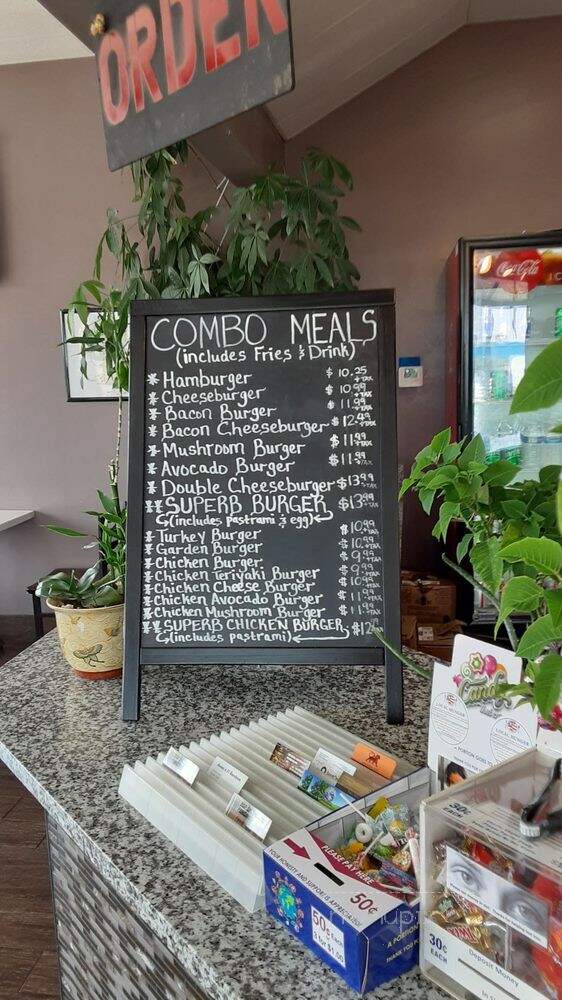 ORDER
COMBO MEALS
(includes Fries & Drink)
* Hamburger $10.25 +TAX
* Cheeseburger $10.99 +TAX
* Bacon Burger $11.99 +TAX
* Bacon Cheeseburger $12.49 +TAX
* Mushroom Burger $11.99 +TAX
* Avocado Burger $11.99 +TAX
* Double Cheeseburger $13.99 +TAX
** SUPERB BURGER $13.99 +TAX
(includes pastrami & egg)
* Turkey Burger $10.99 +TAX
* Garden Burger $10.99 +TAX
* Chicken Burger $9.99 +TAX
* Chicken Teriyaki Burger $9.99 +TAX
* Chicken Cheese Burger $10.99 +TAX
* Chicken Avocado Burger $11.99 +TAX
* Chicken Mushroom Burger $11.99 +TAX
** SUPERB CHICKEN BURGER $12
(includes pastrami)
Coca-Cola
Candy
PLEASE PAY HERE
50¢
YOUR HONESTY AND SUPPORT IS APPRECIATED!
50¢ EACH
3 for $1.00
A PORTION
THANK YOU FOR
30¢
EACH
30¢
EACH
Deposit Money